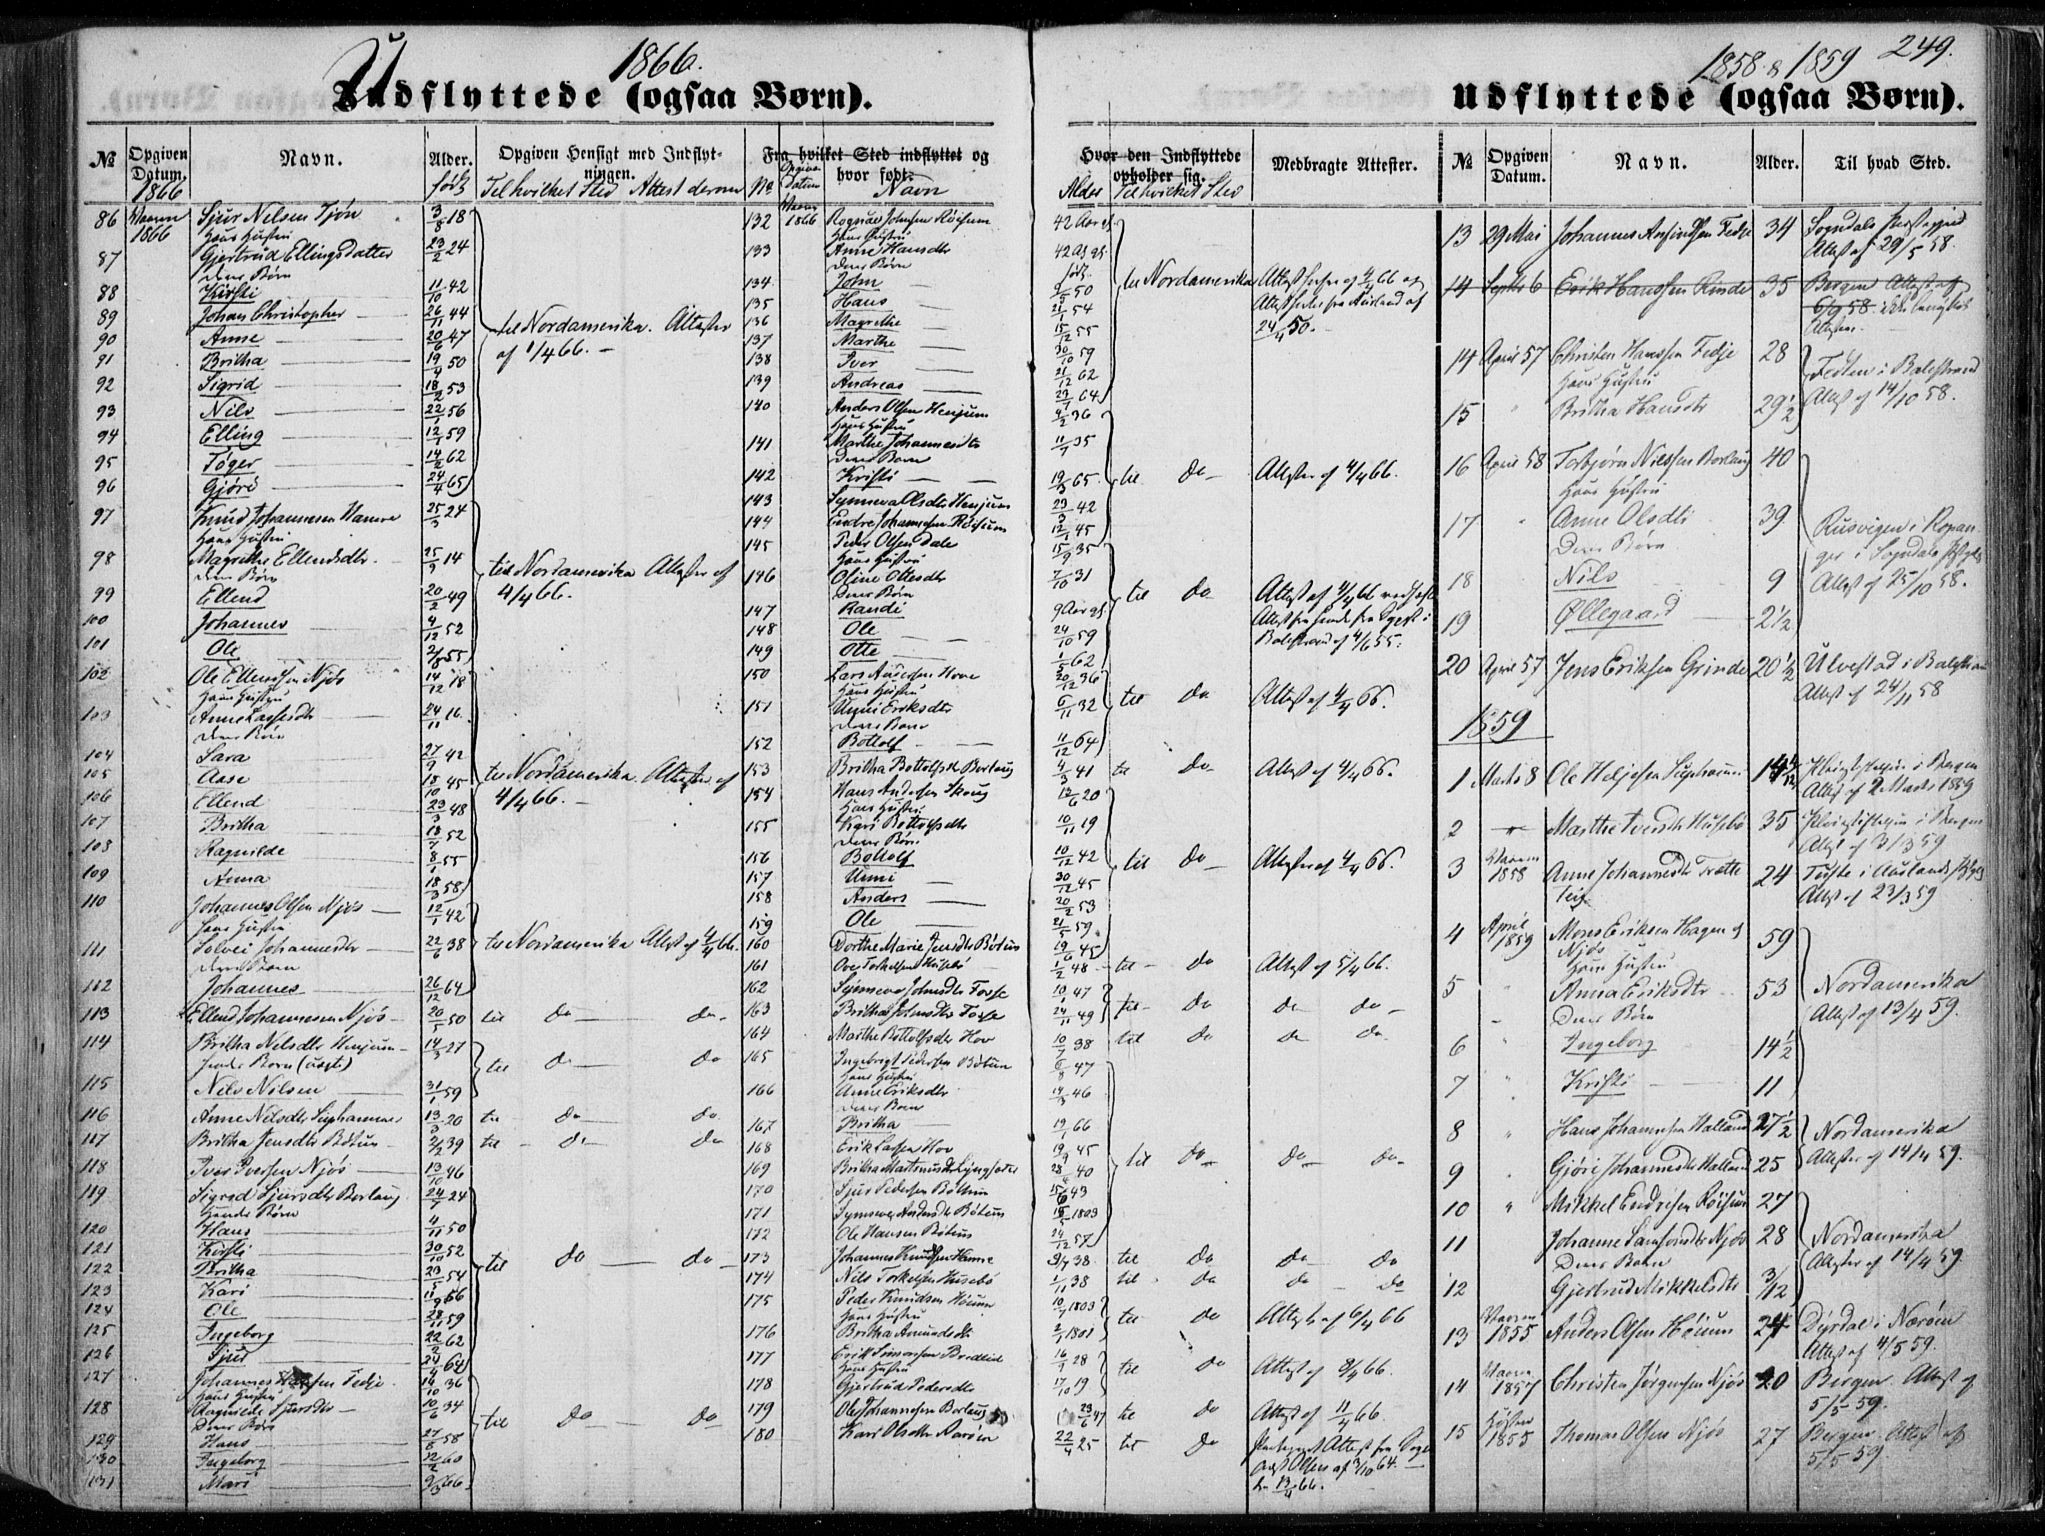 1866.
Udflyttede (ogsaa Børn).
№
Opgiven Datum.
Navn.
Alder.
Opgiven Hensigt med Indflytningen.
Fra hvilket Sted indflyttet og hvor født.
1866
født
Til hvilket Sted Attest derom
No
Opgivn Datum
Navn
86 Vaaren 1866 Sjur Nilsen Tjøn 3/8 18
Hans Hustru
87 Gjertrud Ellingsdatter 23/2 24
Deres Børn
88 Kirsti 11/10 42
89 Johan Christopher 26/11 44
90 Anne 20/6 47
91 Britha 19/4 50
92 Sigrid 18/2 53
93 Nils 22/1 56
94 Elling 12/1 59
95 Tøger 14/2 62
96 Gjøri 24/4 65
til Nordamerika. Attester
af 1/4 66.
97 Knud Johannesen Hamre 25/3 24
Hans Hustru
98 Magrethe Ellendsdtr 25/9 14
Deres Børn
99 Ellend 20/2 49
100 Johannes 4/12 52
101 Ole 2/8 55
til Nordamerika Attester af
4/4 66.
102 Ole Ellendsen Njøs 14/12 18
Hans Hustru
103 Anne Lassesdtr 24/11 16
Deres Børn
104 Sara 27/9 42
105 Aase 18/10 45
106 Ellend 23/3 48
107 Britha 18/7 52
108 Ragnilde 8/1 55
109 Anna 18/3 58
til Nordamerika. Attester af
4/4 66.
110 Johannes Olsen Njøs 12/1 42
Hans Hustru
111 Solvei Johannesdtr 22/6 38
Deres Barn
112 Johannes 26/12 64
til Nordamerika Attest af 4/4 66.
113 Ellend Johannesen Njøs 20/5 50 til do do
114 Britha Nilsdtr Henjum 14/3 27
Hendes Barn (uægte)
115 Nils Nilsen 31/1 59
til do do
116 Anne Nilsdtr 13/3 20 til do do
117 Britha Jensdtr Bøtun 2/2 39 til do do
118 Iver Iversen Njøs 13/10 46
119 Sigrid Sjursdtr Borlaug 24/7 24
Hendes Børn
120 Hans 4/11 50
121 Kirsti 30/10 52
122 Britha 23/5 54
123 Kari 11/9 56
124 Ole 28/11 59
125 Ingeborg 22/2 62
126 Sjur 24/4 64
til do do
127 Johannes Hansen Fedje 14/10 36
Hans Hustru
128 Ragnilde Sjursdtr 10/6 34
Deres Børn
129 Hans 27/8 58
130 Ingeborg 12/2 60
131 Mari 9/3 66
til do do
132 Vaaren 1866 Rognald Johnsen Røisum
Hans Hustru
133 Anne Hansdtr
Deres Børn
134 John
135 Hans
136 Magrethe
137 Marthe
138 Iver
139 Andreas
140 Anders Olsen Henjum
Hans Hustru
141 Marthe Johannesdtr
Deres Barn
142 Kristi
143 Synneva Olsdtr Henjum
144 Endre Johannesen Røisum
145 Peder Olsen Dale
Hans Hustru
146 Oline Ottesdtr
Deres Børn
147 Randi
148 Ole
149 Otte
150 Lars Aasesen Hove
Hans Hustru
151 Unni Eriksdtr
Deres Barn
152 Bottolf
153 Britha Bottolfsdtr Borlaug
154 Hans Andersen Skoug
Hans Hustru
155 Kari Bottolfsdtr
Deres Børn
156 Bottolf
157 Unni
158 Anders
159 Ole
160 Dorthe Marie Jensdtr Bøtun
161 Ove Torkelsen Husebø
162 Synneva Johnsdtr Fosse
163 Britha Johnsdtr Fosse
164 Marthe Bottolfsdtr Hov
165 Ingebrigt Pedersen Bøtun
Hans Hustru
166 Anne Eriksdtr
Deres Barn
167 Britha
168 Erik Lassen Hov
169 Britha
170 Sjur Pedersen Bøthun
171 Synneva Andersdtr Bøtun
172 Ole Hansen Bøtun
173 Johannes Knudsen Hamre
174 Nils Torkelsen Husebø
175 Peder Knudsen Høium
Hans Hustru
176 Britha Amundsdtr
177 Erik Simonsen Bredlid
Hans Hustru
178 Gjertrud Pedersdtr
179 Ole Johannesen Borlaug
180 Kari Olsdtr Aarøen
1858 & 1859 249.
Udflyttede (ogsaa Børn).
Hvor den Indflyttede opholder sig.
Medbragte Attester.
№
Opgiven Datum.
Navn.
Alder.
Til hvad Sted.
Alder
Til hvilket Sted
42 Aar gl.
42 Aar gl.
født
8/5 50
21/1 54
15/12 55
30/10 59
21/12 62
23/7 64
til Nordamerika
Attest af 4/4 66 og
Attest fra Aurland af
24/4 50.
4/2 36
11/7 35
19/3 65
23/3 42
12/1 45
til do Attester af 4/4 66.
15/9 35
7/10 31
9 Aar gl.
24/10 59
1/5 62
til do Attest af 4/4 66
Balestrand af 4/6 55.
20/12 36
6/11 32
11/12 64
til do Attest af 4/4 66.
4/3 41 til do Attest af 4/4 66.
13/6 20
10/11 19
10/12 42
30/12 45
20/2 53
21/5 59
til do Attester af 4/4 66.
19/6 45
1/2 48 til do Attest af 5/4 66.
10/1 47
24/11 49
til do do do
10/7 38 til do do do
6/8 47
14/3 46
19/1 66
19/9 45
28/4 40
15/6 43
15/5 1803
24/12 57
til do do do
9/7 38 til do do do
1/11 38 til do do do
10/7 1803
2/1 1801
til do Attester af 6/4 66
16/9 28
17/10 19
til do Attester af 8/4 66.
23/6 47 til do Attest af 11/4 66.
22/4 25 til do
Attest fra
af 3/10 64.
13/4 66.
13 29 Mai Johannes Fedje 34 Sogndals Præstegjeld
Attest af 29/5 58.
14 Septbr 6 Erik Hanssen Rinde 35 Bergen Attest af
6/9 58
14 April 57 Christen Hanssen Fedje 28
Hans Hustru
15 " Britha Hansdtr 29 1/2
i Balestrand
Attest af 14/10 58.
16 April 58 Torbjørn Nilssen Borlaug 40
Hans Hustru
17 " Anne Olsdtr 39
Deres Børn
18 Nils 9
19 Øllegaard 2 1/2
Rusvigen i Kopanger i Sogndals
Attest af 25/10 58.
20 April 57 Jens Eriksen Grinde 20 1/2 Ulvestad i Balestrand
Attest af 24/11 58
1859
1 Marts 8 Ole Heljesen 14 i Bergen
Attest af 2 Marts 1859
2 Marthe Iversdtr Husebø 35 i Bergen
Attest af 3/3 59
3 Vaaren 1858 Anne Johannesdtr Trætteteig 24 Tufte i Aurlands
Attest af 23/3 59
4 April 1859 Mons Eriksen Hagen af
Njøs 59
Hans Hustru
5 " Anna Eriksdtr 53
Deres Børn
6 " Ingeborg 14 1/2
7 " Kristi 11
Nordamerika
Attest af 13/4 59.
8 " Hans Johannesen Halland 27 1/2
9 " Gjøri Johannesdtr Halland 25
Nordamerika
Attester af 14/4 59.
10 " Mikkel Endresen Røisum 27
11 Johanne Samsonsdtr Njøs 28
Deres Barn
12 Gjertrud Mikkelsdtr 3/12
Nordamerika
Attester af 14/4 59.
13 Vaaren 1855 Anders Olsen Høium 24 Dyrdal i Nærøen
Attest af 4/5 59.
14 Vaaren 1857 Christen Jørgensen Njøs 20 Bergen. Attest af
5/5 59.
15 Høsten 1855 Thomas Olsen Njøs 27 Bergen. Attest af
5/5 59.